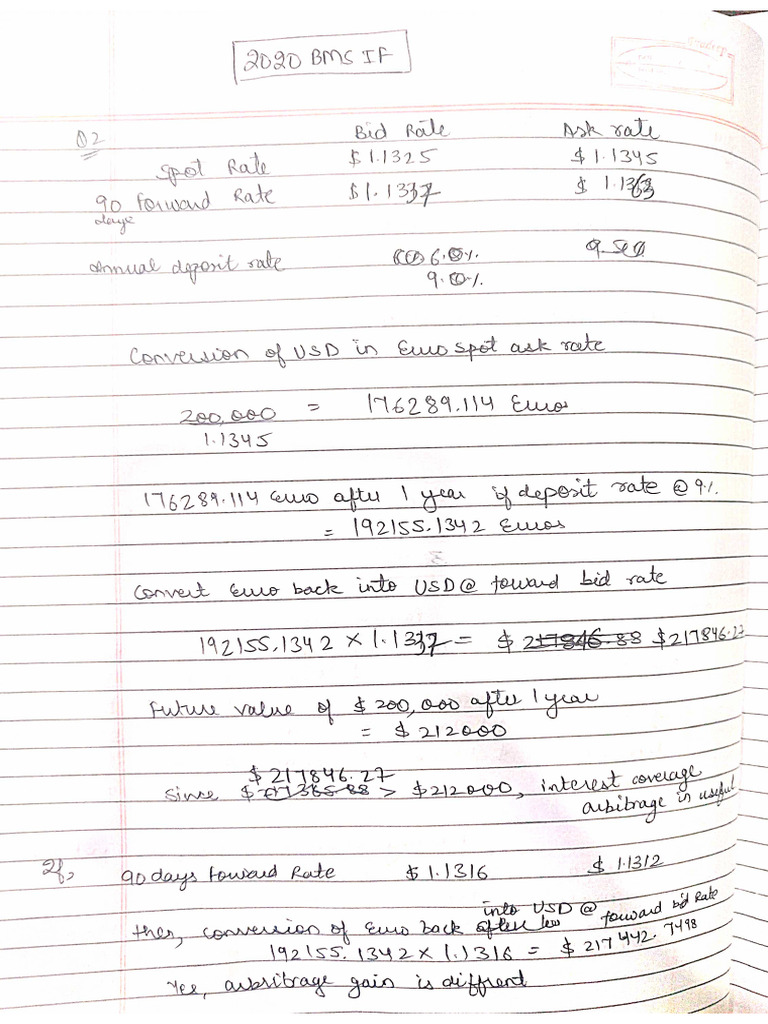 2020 BMS IF
Q2 Bid Rate Ask rate
Spot Rate $1.1325 $1.1345
90 Forward Rate $1.1337 $ 1.1363
days
Annual deposit rate 6.0% 9.50
9.0%
Conversion of USD in Euro spot ask rate
200,000 = 176289.114 Euros
1.1345
176289.114 Euro after 1 year if deposit rate @ 9%
= 192155.1342 Euros
Convert Euro back into USD @ foward bid rate
192155.1342 x 1.1337 = $217846.27
Future value of $ 200,000 after 1 year
= $ 212000
$ 217846.27
Since > $212000, interest coverage
arbitrage is useful
If, 90 days foward Rate $1.1316 $ 1.1312
into USD @ foward bid Rate
then, conversion of Euro back
192155.1342 x 1.1316 = $ 217442.7498
Yes, arbsitrage gain is diffrent